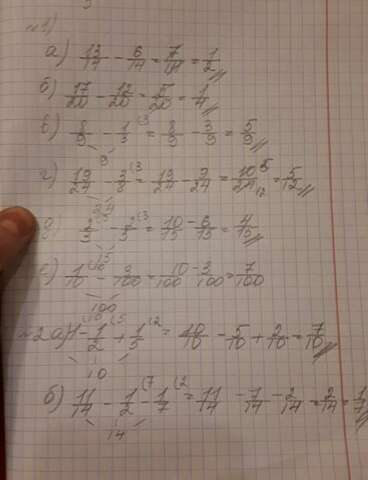 №1)
а) 13/14 - 6/14 = 7/14 = 1/2
б) 17/20 - 12/20 = 5/20 = 1/4
в) 8/9 - 1/3 (3 = 8/9 - 3/9 = 5/9
9
г) 19/24 - 3/8 (3 = 19/24 - 9/24 = 10 5/24 12 = 5/12
24
д) 2/3 (5 - 2/5 (3 = 10/15 - 6/15 = 4/15
15
е) 1/10 (10 - 3/100 = 10/100 - 3/100 = 7/100
100
№2 а) 1 (10 - 1/2 (5 + 1/5 (2 = 10/10 - 5/10 + 2/10 = 7/10
10
б) 11/14 - 1/2 (7 - 1/7 (2 = 11/14 - 7/14 - 2/14 = 2/14 = 1/7
14